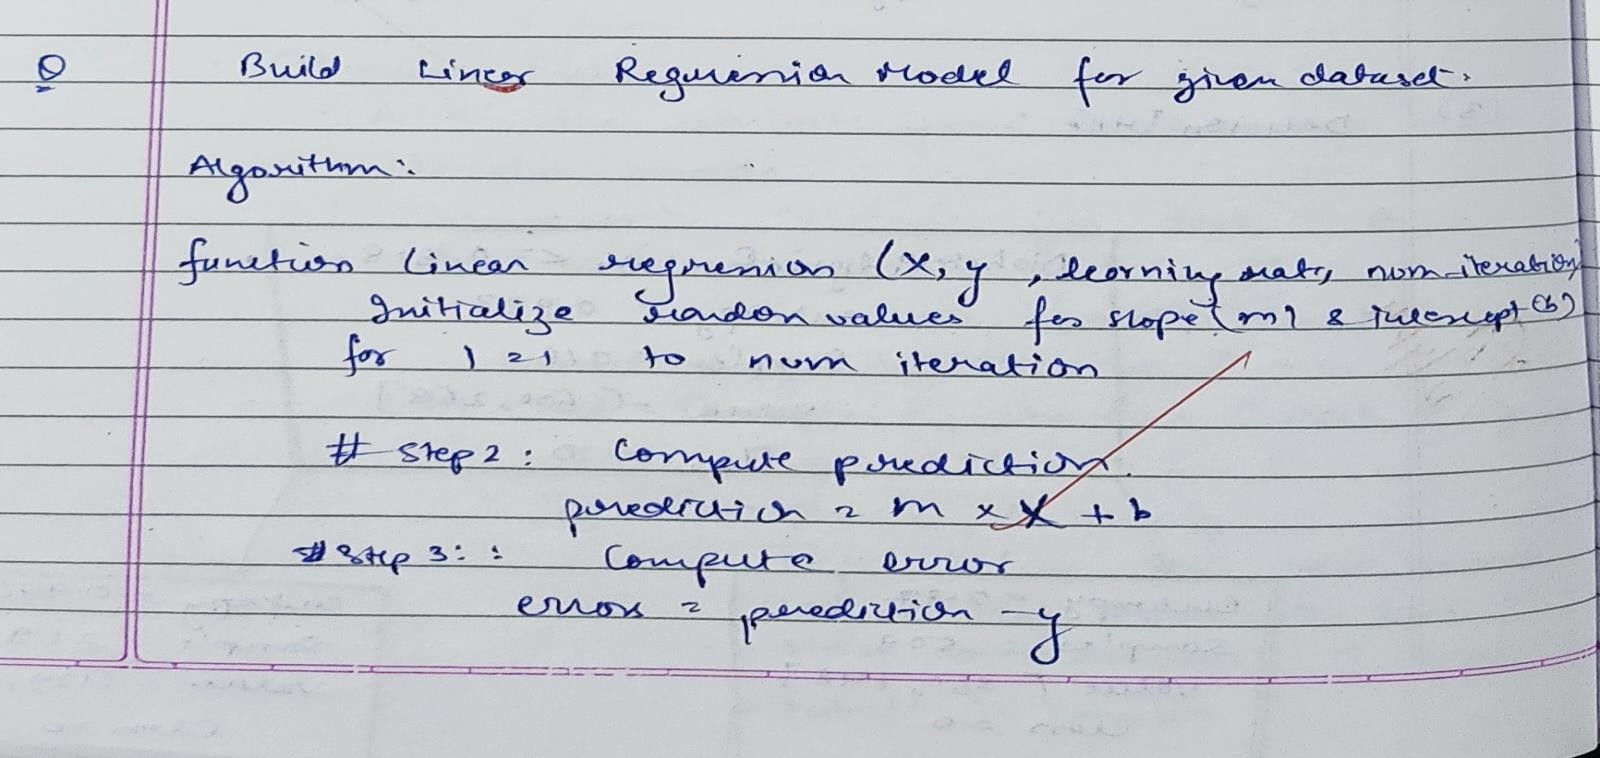 Q Build Linear Regression Model for given dataset.
Algorithm:
function linear regression (x, y, learning rate, num-iteration)
Initialize random values for slope (m) & intercept (b)
for i = 1 to num iteration
# Step 2: Compute prediction.
prediction = m x X + b
# Step 3: : Compute error
error = prediction - y